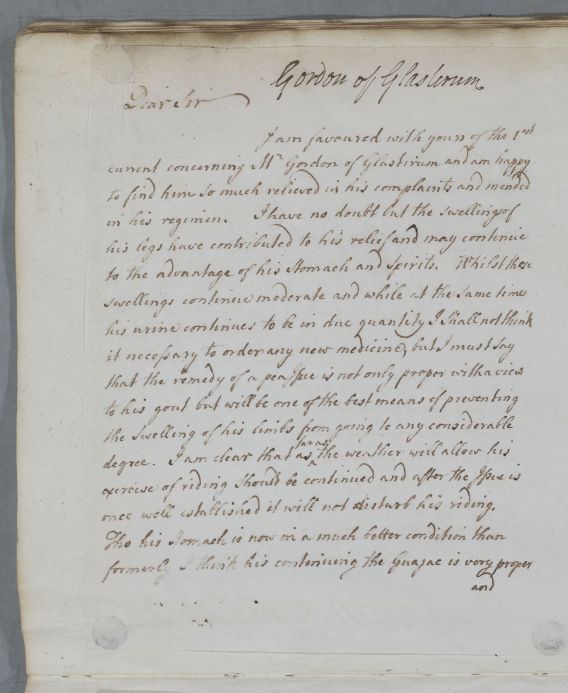 Gordon of Glastirum
Dear Sir
I am favoured with yours of the 1st
current concerning Mr Gordon of Glastirum and am happy
to find him so much relieved in his complaints and mended
in his regimen. I have no doubt but the swellings of
his legs have contributed to his relief and may continue
to the advantage of his stomach and spirits. Whilst these
swellings continue moderate and while at the same time
his urine continues to be in due quantity I shall not think
it necessary to order any new medicine, but I must say
that the remedy of a pea Issue is not only proper with a view
to his gout but will be one of the best means of preventing
the swelling of his limbs from going to any considerable
degree. I am clear that as far as the weather will allow his
exercise of riding should be continued and after the Issue is
once well established it will not disturb his riding.
Tho his stomach is now in a much better condition than
formerly I think his continuing the Guajac is very proper
and